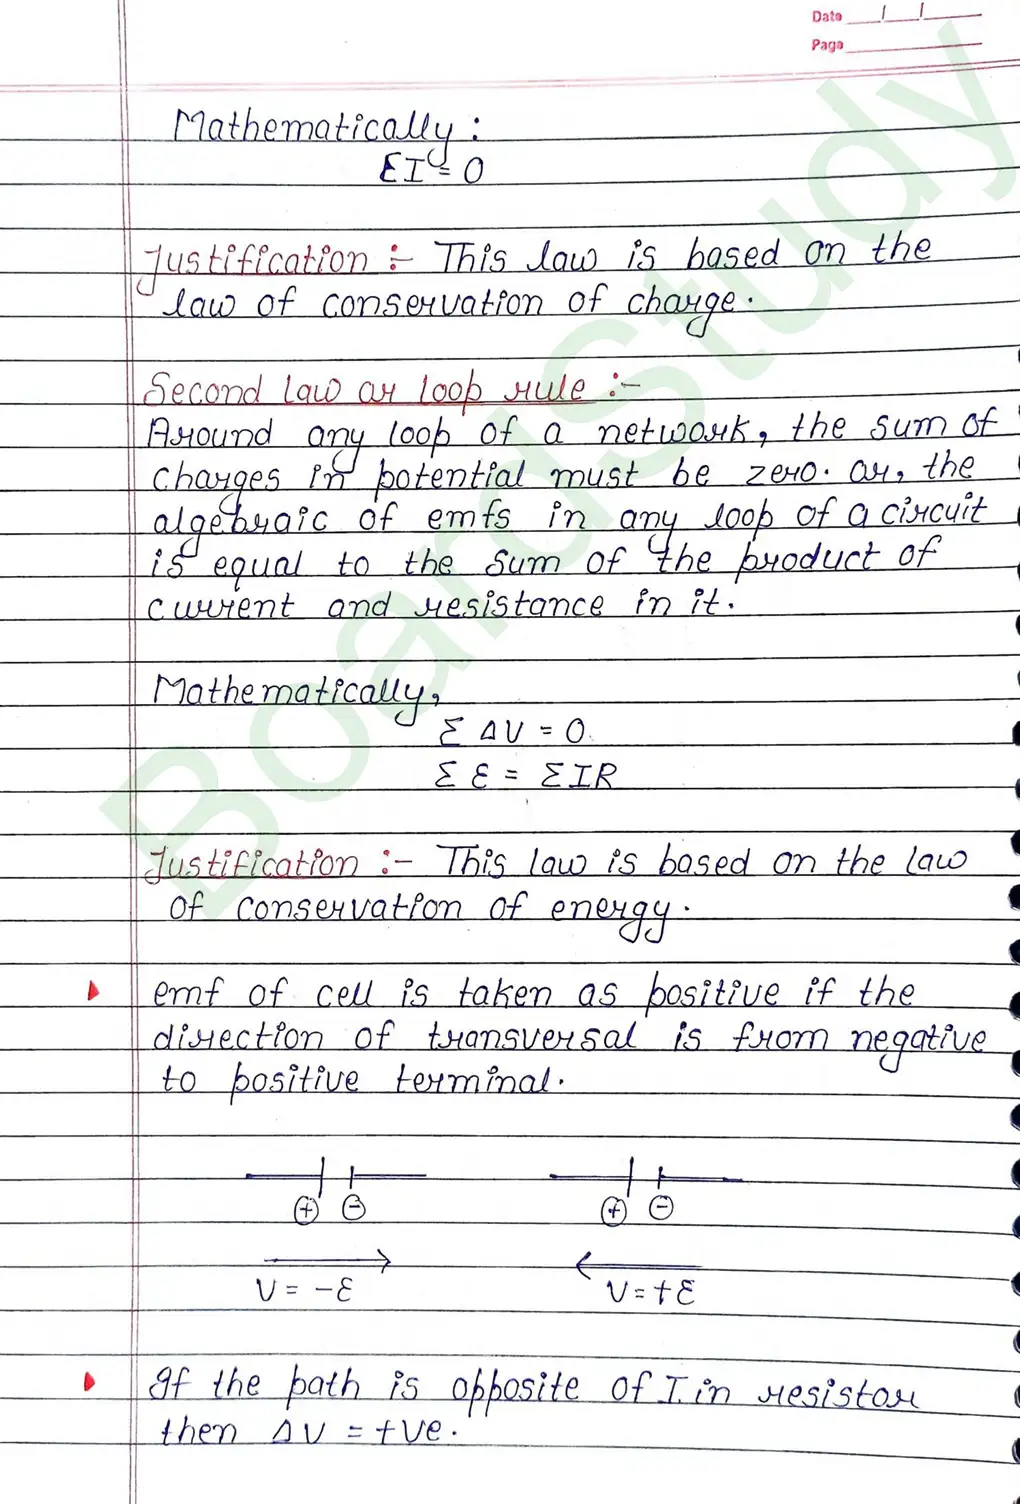 Date
Page
Mathematically :
ΣI = 0
Justification :- This law is based on the
law of conservation of charge.
Second law or loop rule :-
Around any loop of a network, the sum of
charges in potential must be zero. or, the
algebraic of emfs in any loop of a circuit
is equal to the sum of the product of
current and resistance in it.
Mathematically,
Σ ΔV = 0.
Σ Ɛ = ΣIR
Justification :- This law is based on the law
of conservation of energy.
emf of cell is taken as positive if the
direction of transversal is from negative
to positive terminal.
+ - + -
V = -Ɛ V = +Ɛ
If the path is opposite of I in resistor
then ΔV = +ve.
BoardStudy